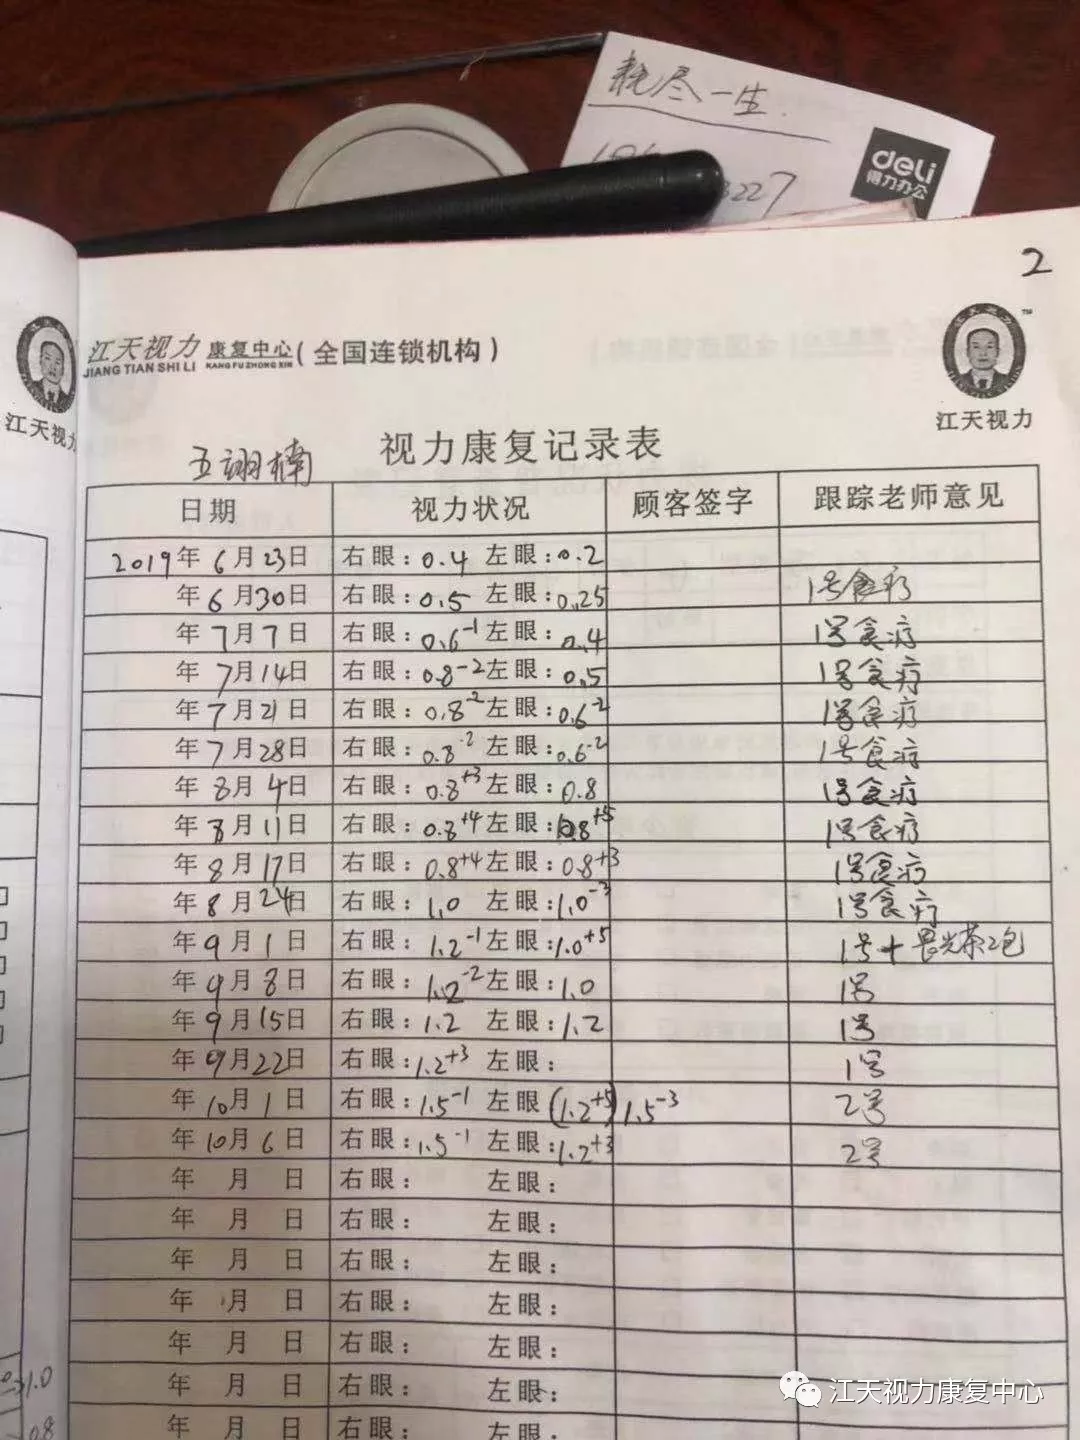 耗尽一生
3227
deli
得力办公
2
江天视力 康复中心 (全国连锁机构)
JIANG TIAN SHI LI KANG FU ZHONG XIN
TM
江天视力
江天视力
视力康复记录表
翊楠
日期 视力状况 顾客签字 跟踪老师意见
2019年6月23日 右眼:0.4 左眼:0.2
年6月30日 右眼:0.5 左眼:0.25 1号食疗
年7月7日 右眼:0.6-1 左眼:0.4 1号食疗
年7月14日 右眼:0.8-2 左眼:0.5 1号食疗
年7月21日 右眼:0.8-2 左眼:0.6-2 1号食疗
年7月28日 右眼:0.8-2 左眼:0.6-2 1号食疗
年8月4日 右眼:0.8+3 左眼:0.8 1号食疗
年8月11日 右眼:0.8+4 左眼:0.8+5 1号食疗
年8月17日 右眼:0.8+4 左眼:0.8+3 1号食疗
年8月24日 右眼:1.0 左眼:1.0-3 1号食疗
年9月1日 右眼:1.2-1 左眼:1.0+5 1号+晨光茶2包
年9月8日 右眼:1.2-2 左眼:1.0 1号
年9月15日 右眼:1.2 左眼:1.2 1号
年9月22日 右眼:1.2+3 左眼: 1号
年10月1日 右眼:1.5-1 左眼(1.2+5)1.5-3 2号
年10月6日 右眼:1.5-1 左眼:1.2+3 2号
年 月 日 右眼: 左眼:
年 月 日 右眼: 左眼:
年 月 日 右眼: 左眼:
年 月 日 右眼: 左眼:
年 月 日 右眼: 左眼:
年 月 日 右眼: 左眼:
年 月 日 右眼: 左眼:
1.0
0.8
江天视力康复中心